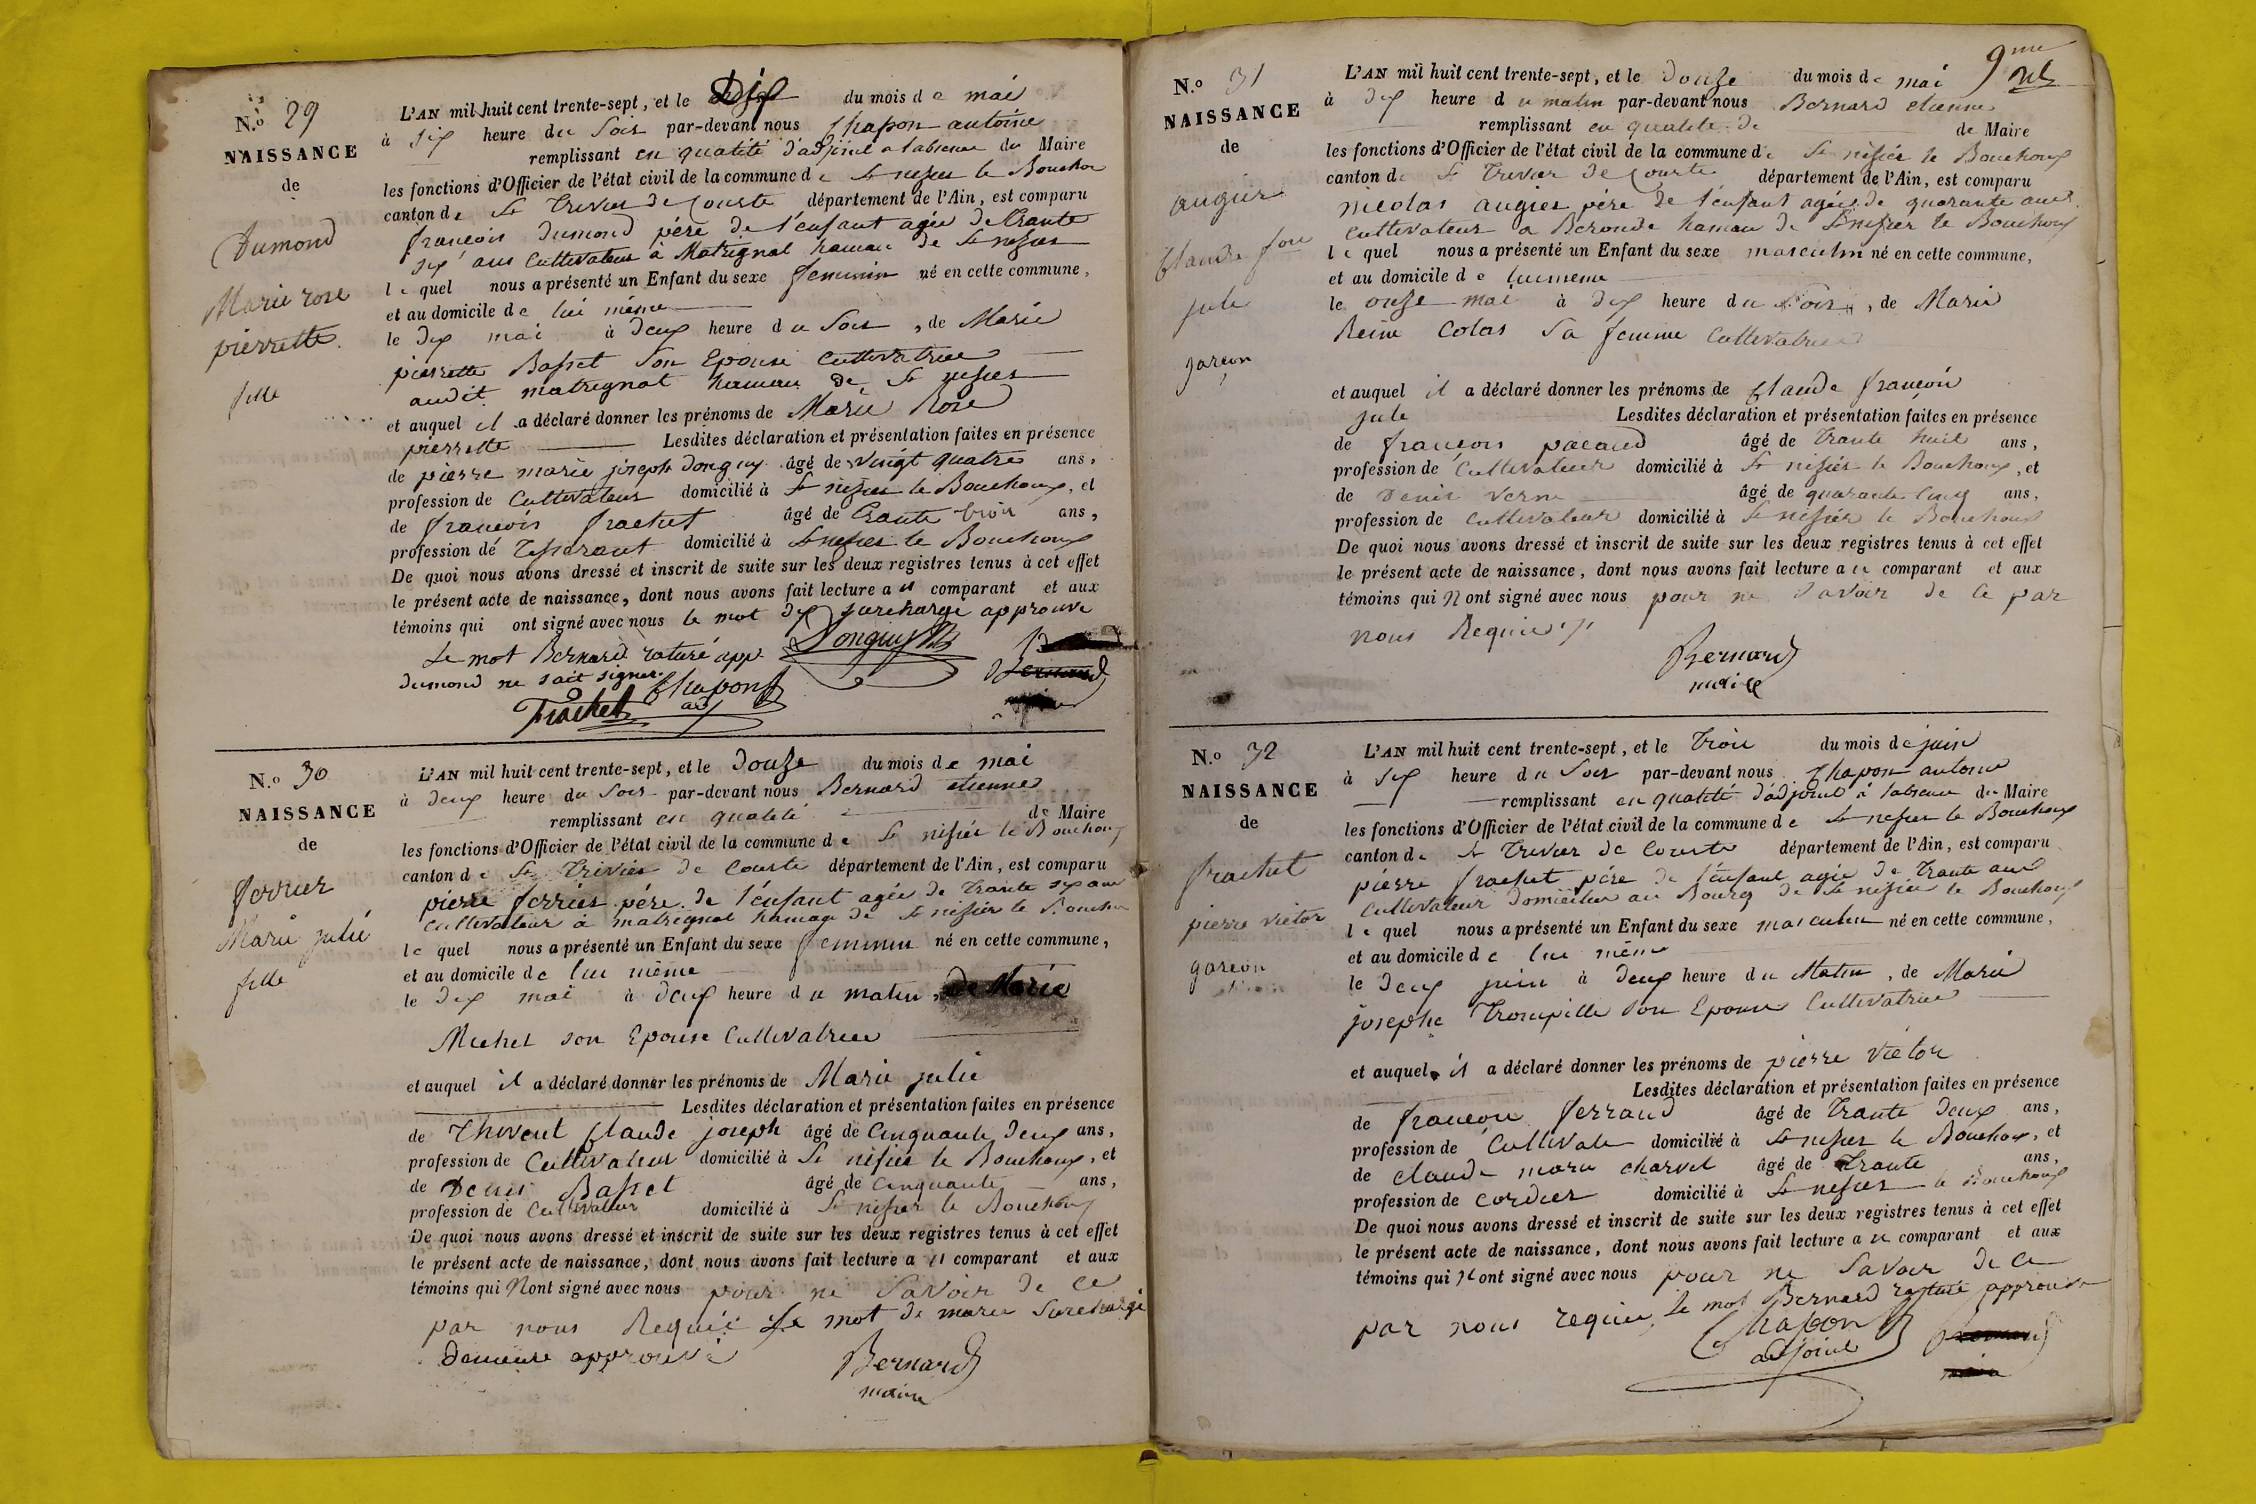 N.o 29
NAISSANCE
de
Dumond
Marie rose
pierrette
fille
L'AN mil huit cent trente-sept, et le Dix du mois de mai
à six heure du Soir par-devant nous Chapon antoine
remplissant en qualité d'adjoint a labsence du Maire
les fonctions d'Officier de l'état civil de la commune de St nisier le Bouchou
canton de St Trivier de Courte département de l'Ain, est comparu
francois dumond pére de l'énfant agée de trante
six ans Cultivateur à Matrignat hamau de St nisier
le quel nous a présenté un Enfant du sexe feminin né en cette commune,
et au domicile de lui même
le dix mai à deux heure du Soir, de Marie
pierrette Basset Son Epouse Cultivatrice
audit matrignat hamau de St nisier
et auquel il a déclaré donner les prénoms de Marie Rose
pierrette Lesdites déclaration et présentation faites en présence
de pierre marie joseph donguy âgé de vingt quatre ans,
profession de Cultivateur domicilié à St nisier le Bouchoux, et
de francois frachet âgé de trante trois ans,
profession dé Tisserant domicilié à St nisier le Bouchoux
De quoi nous avons dressé et inscrit de suite sur les deux registres tenus à cet effet
le présent acte de naissance, dont nous avons fait lecture a u comparant et aux
témoins qui ont signé avec nous le mot dix surcharge approuve
Le mot Bernard raturé app
dumond ne sait signer
Donguy
Chapon
adj
Frachet
Bernard
N.o 30
NAISSANCE
de
ferrier
Marie julie
fille
L'AN mil huit cent trente-sept, et le Douze du mois de mai
à deux heure du Soir par-devant nous Bernard etienne
remplissant en qualité de Maire
les fonctions d'Officier de l'état civil de la commune de St nisier le Bouchoux
canton de St Trivier de Courte département de l'Ain, est comparu
pierre ferrier pére de l'énfant agée de trante six ans
Cultivateur à matrignat hamau de St nisier le Bouchou
le quel nous a présenté un Enfant du sexe feminin né en cette commune,
et au domicile de lui même
le dix mai à deux heure du matin, de Marie
Michel son Epouse Cultivatrice
et auquel il a déclaré donner les prénoms de Marie julie
Lesdites déclaration et présentation faites en présence
de Thivent Claude joseph âgé de Cinquante deux ans,
profession de Cultivateur domicilié à St nisier le Bouchoux, et
de Denis Basset âgé de Cinquante ans,
profession de Cultivateur domicilié à St nisier le Bouchoux
De quoi nous avons dressé et inscrit de suite sur les deux registres tenus à cet effet
le présent acte de naissance, dont nous avons fait lecture a u comparant et aux
témoins qui Nont signé avec nous pour ne Savoir de ce
par nous Requis Le mot de marie Surchargé
demeure approuvé
Bernard
maire
9me
N.o 31
NAISSANCE
de
augier
Claude fois
jule
garçon
L'AN mil huit cent trente-sept, et le douze du mois de mai
à dix heure du matin par-devant nous Bernard etienne
remplissant en qualité de de Maire
les fonctions d'Officier de l'état civil de la commune de St nisier le Bouchoux
canton de St Trivier de Courte département de l'Ain, est comparu
nicolas augier pére de l'énfant agée de quarante ans
Cultivateur a Beronde hamau de St nisier le Bouchoux
le quel nous a présenté un Enfant du sexe masculin né en cette commune,
et au domicile de lui meme
le onze mai à dix heure du Soir, de Marie
Reine Colas Sa femme Cultivatrice
et auquel il a déclaré donner les prénoms de Claude françois
jule Lesdites déclaration et présentation faites en présence
de françois pacaud âgé de trante huit ans,
profession de Cultivateur domicilié à St nisier le Bouchoux, et
de Denis Verne âgé de quarante Cinq ans,
profession de Cultivateur domicilié à St nisier le Bouchoux
De quoi nous avons dressé et inscrit de suite sur les deux registres tenus à cet effet
le présent acte de naissance, dont nous avons fait lecture a u comparant et aux
témoins qui Nont signé avec nous pour ne Savoir de ce par
nous Requis
Bernard
maire
N.o 32
NAISSANCE
de
frachet
pierre victor
garçon
L'AN mil huit cent trente-sept, et le trois du mois de juin
à six heure du Soir par-devant nous Chapon antoine
remplissant en qualité d'adjoint à labsence du Maire
les fonctions d'Officier de l'état civil de la commune de St nisier le Bouchoux
canton de St Trivier de Courte département de l'Ain, est comparu
pierre frachet pére de l'énfant agée de trante ans
Cultivateur domicilier au Bourg de St nisier le Bouchoux
le quel nous a présenté un Enfant du sexe masculin né en cette commune,
et au domicile de lui même
le deux juin à deux heure du Matin, de Marie
josephe Troupille son Epouse Cultivatrice
et auquel il a déclaré donner les prénoms de pierre victor
Lesdites déclaration et présentation faites en présence
de françois ferraud âgé de trante deux ans,
profession de Cultivate domicilié à St nisier le Bouchoux, et
de Claude marie charvet âgé de trante ans,
profession de cordier domicilié à St nisier le Bouchoux
De quoi nous avons dressé et inscrit de suite sur les deux registres tenus à cet effet
le présent acte de naissance, dont nous avons fait lecture a u comparant et aux
témoins qui Nont signé avec nous pour ne Savoir de ce
par nous requis, le mot Bernard raturé approuve
Chapon
adjoint